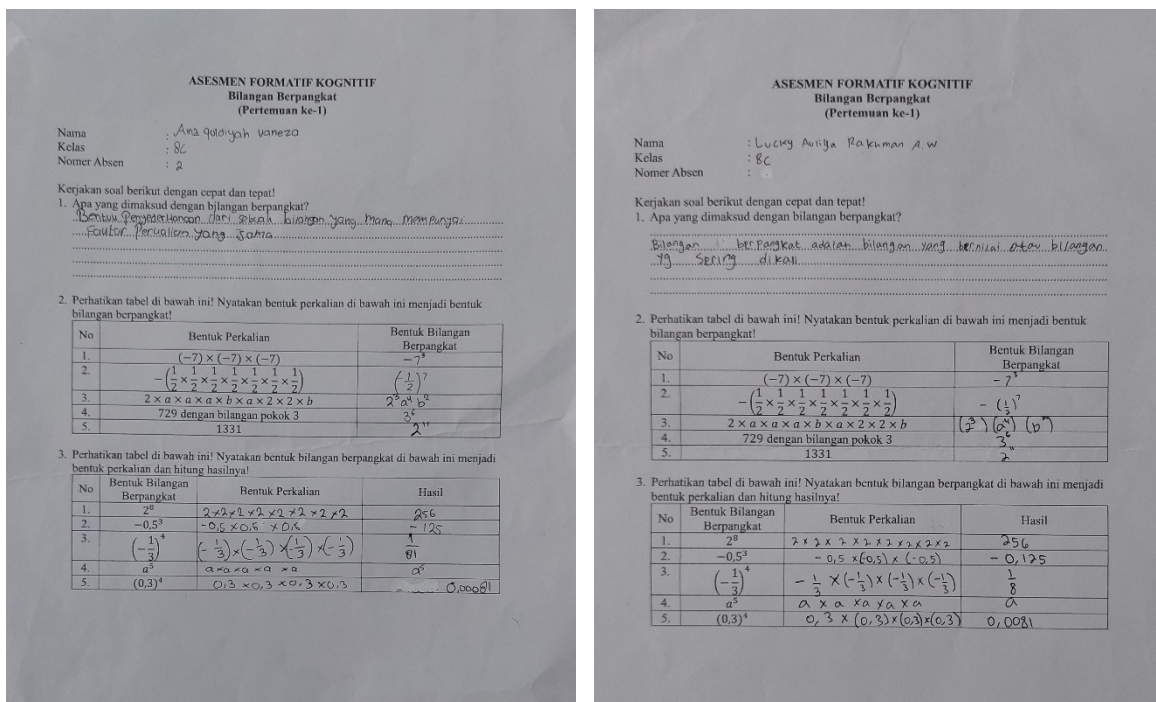 ASESMEN FORMATIF KOGNITIF
Bilangan Berpangkat
(Pertemuan ke-1)
Nama : Ana qoldiyah vaneza
Kelas : 8C
Nomer Absen : 2
Kerjakan soal berikut dengan cepat dan tepat!
1. Apa yang dimaksud dengan bilangan berpangkat?
Bentuk Penyederhanaan dari sebuah bilangan yang mana mempunyai
Faktor Perkalian yang sama
2. Perhatikan tabel di bawah ini! Nyatakan bentuk perkalian di bawah ini menjadi bentuk
bilangan berpangkat!
No Bentuk Perkalian Bentuk Bilangan Berpangkat
1. (−7) × (−7) × (−7) −7³
2. −(1/2 × 1/2 × 1/2 × 1/2 × 1/2 × 1/2 × 1/2) (−1/2)⁷
3. 2 × a × a × a × b × a × 2 × 2 × b 2³ a⁴ b²
4. 729 dengan bilangan pokok 3 3⁶
5. 1331 2¹¹
3. Perhatikan tabel di bawah ini! Nyatakan bentuk bilangan berpangkat di bawah ini menjadi
bentuk perkalian dan hitung hasilnya!
No Bentuk Bilangan Berpangkat Bentuk Perkalian Hasil
1. 2⁸ 2×2×2×2×2×2×2×2 256
2. −0,5³ −0,5 × 0,5 × 0,5 −125
3. (−1/3)⁴ (−1/3)×(−1/3)×(−1/3)×(−1/3) 1/81
4. a⁵ a×a×a×a×a a⁵
5. (0,3)⁴ 0,3 × 0,3 × 0,3 × 0,3 0,00081
ASESMEN FORMATIF KOGNITIF
Bilangan Berpangkat
(Pertemuan ke-1)
Nama : Lucky Auliya Rakhman A.W
Kelas : 8C
Nomer Absen :
Kerjakan soal berikut dengan cepat dan tepat!
1. Apa yang dimaksud dengan bilangan berpangkat?
Bilangan berpangkat adalah bilangan yang bernilai atau bilangan
yg sering dikali
2. Perhatikan tabel di bawah ini! Nyatakan bentuk perkalian di bawah ini menjadi bentuk
bilangan berpangkat!
No Bentuk Perkalian Bentuk Bilangan Berpangkat
1. (−7) × (−7) × (−7) −7³
2. −(1/2 × 1/2 × 1/2 × 1/2 × 1/2 × 1/2 × 1/2) −(1/2)⁷
3. 2 × a × a × a × b × a × 2 × 2 × b (2³) (a⁴)
4. 729 dengan bilangan pokok 3 3⁶
5. 1331 2¹¹
3. Perhatikan tabel di bawah ini! Nyatakan bentuk bilangan berpangkat di bawah ini menjadi
bentuk perkalian dan hitung hasilnya!
No Bentuk Bilangan Berpangkat Bentuk Perkalian Hasil
1. 2⁸ 2×2×2×2×2×2×2×2 256
2. −0,5³ −0,5 × (−0,5) × (−0,5) −0,125
3. (−1/3)⁴ −1/3 × (−1/3) × (−1/3) × (−1/3) 1/8
4. a⁵ a × a × a × a × a a
5. (0,3)⁴ 0,3 × (0,3)×(0,3)×(0,3) 0,0081